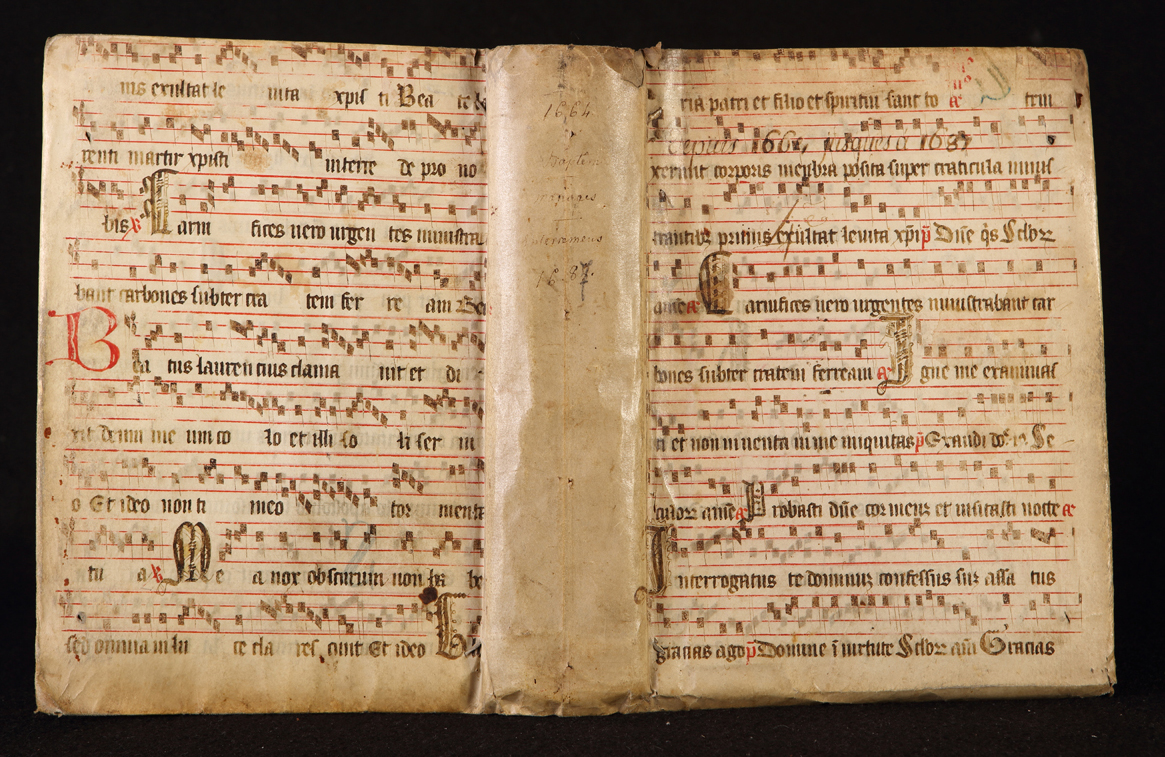 ns exultat le uita xpis ti Bea te
renti martir xpisti interre de pro no
bis ꝶ Carni fices uero urgen tes ministra
bant carbones subter cra tem fer re am Be
Bea tus laurencius clama uit et di
xit deum me um co lo et illi so li ser ui
o Et ideo non ti meo tor menta
tu a ꝶ Me a nox obscurum non ha be
sed omnia in lu ce cla res cunt Et ideo
1664
Baptemes
mariages
1687
ria patri et filio et spiritui sanc to
Depuis 1664 jusques a 1687
corporis membra posita super craticula
primus exultat leuita xp̄i p̄ Dn̄e
Carnifices uero urgentes ministrabant car
bones subter cratem ferream a Igne me examinas
ti et non inuenta in me iniquitas p̄ Exaudi
Probasti dn̄e cor meum et uisitasti nocte a
Interrogatus te dominum confessus sum assa tus
gracias ago p̄ Domine ī uirtute Gracias